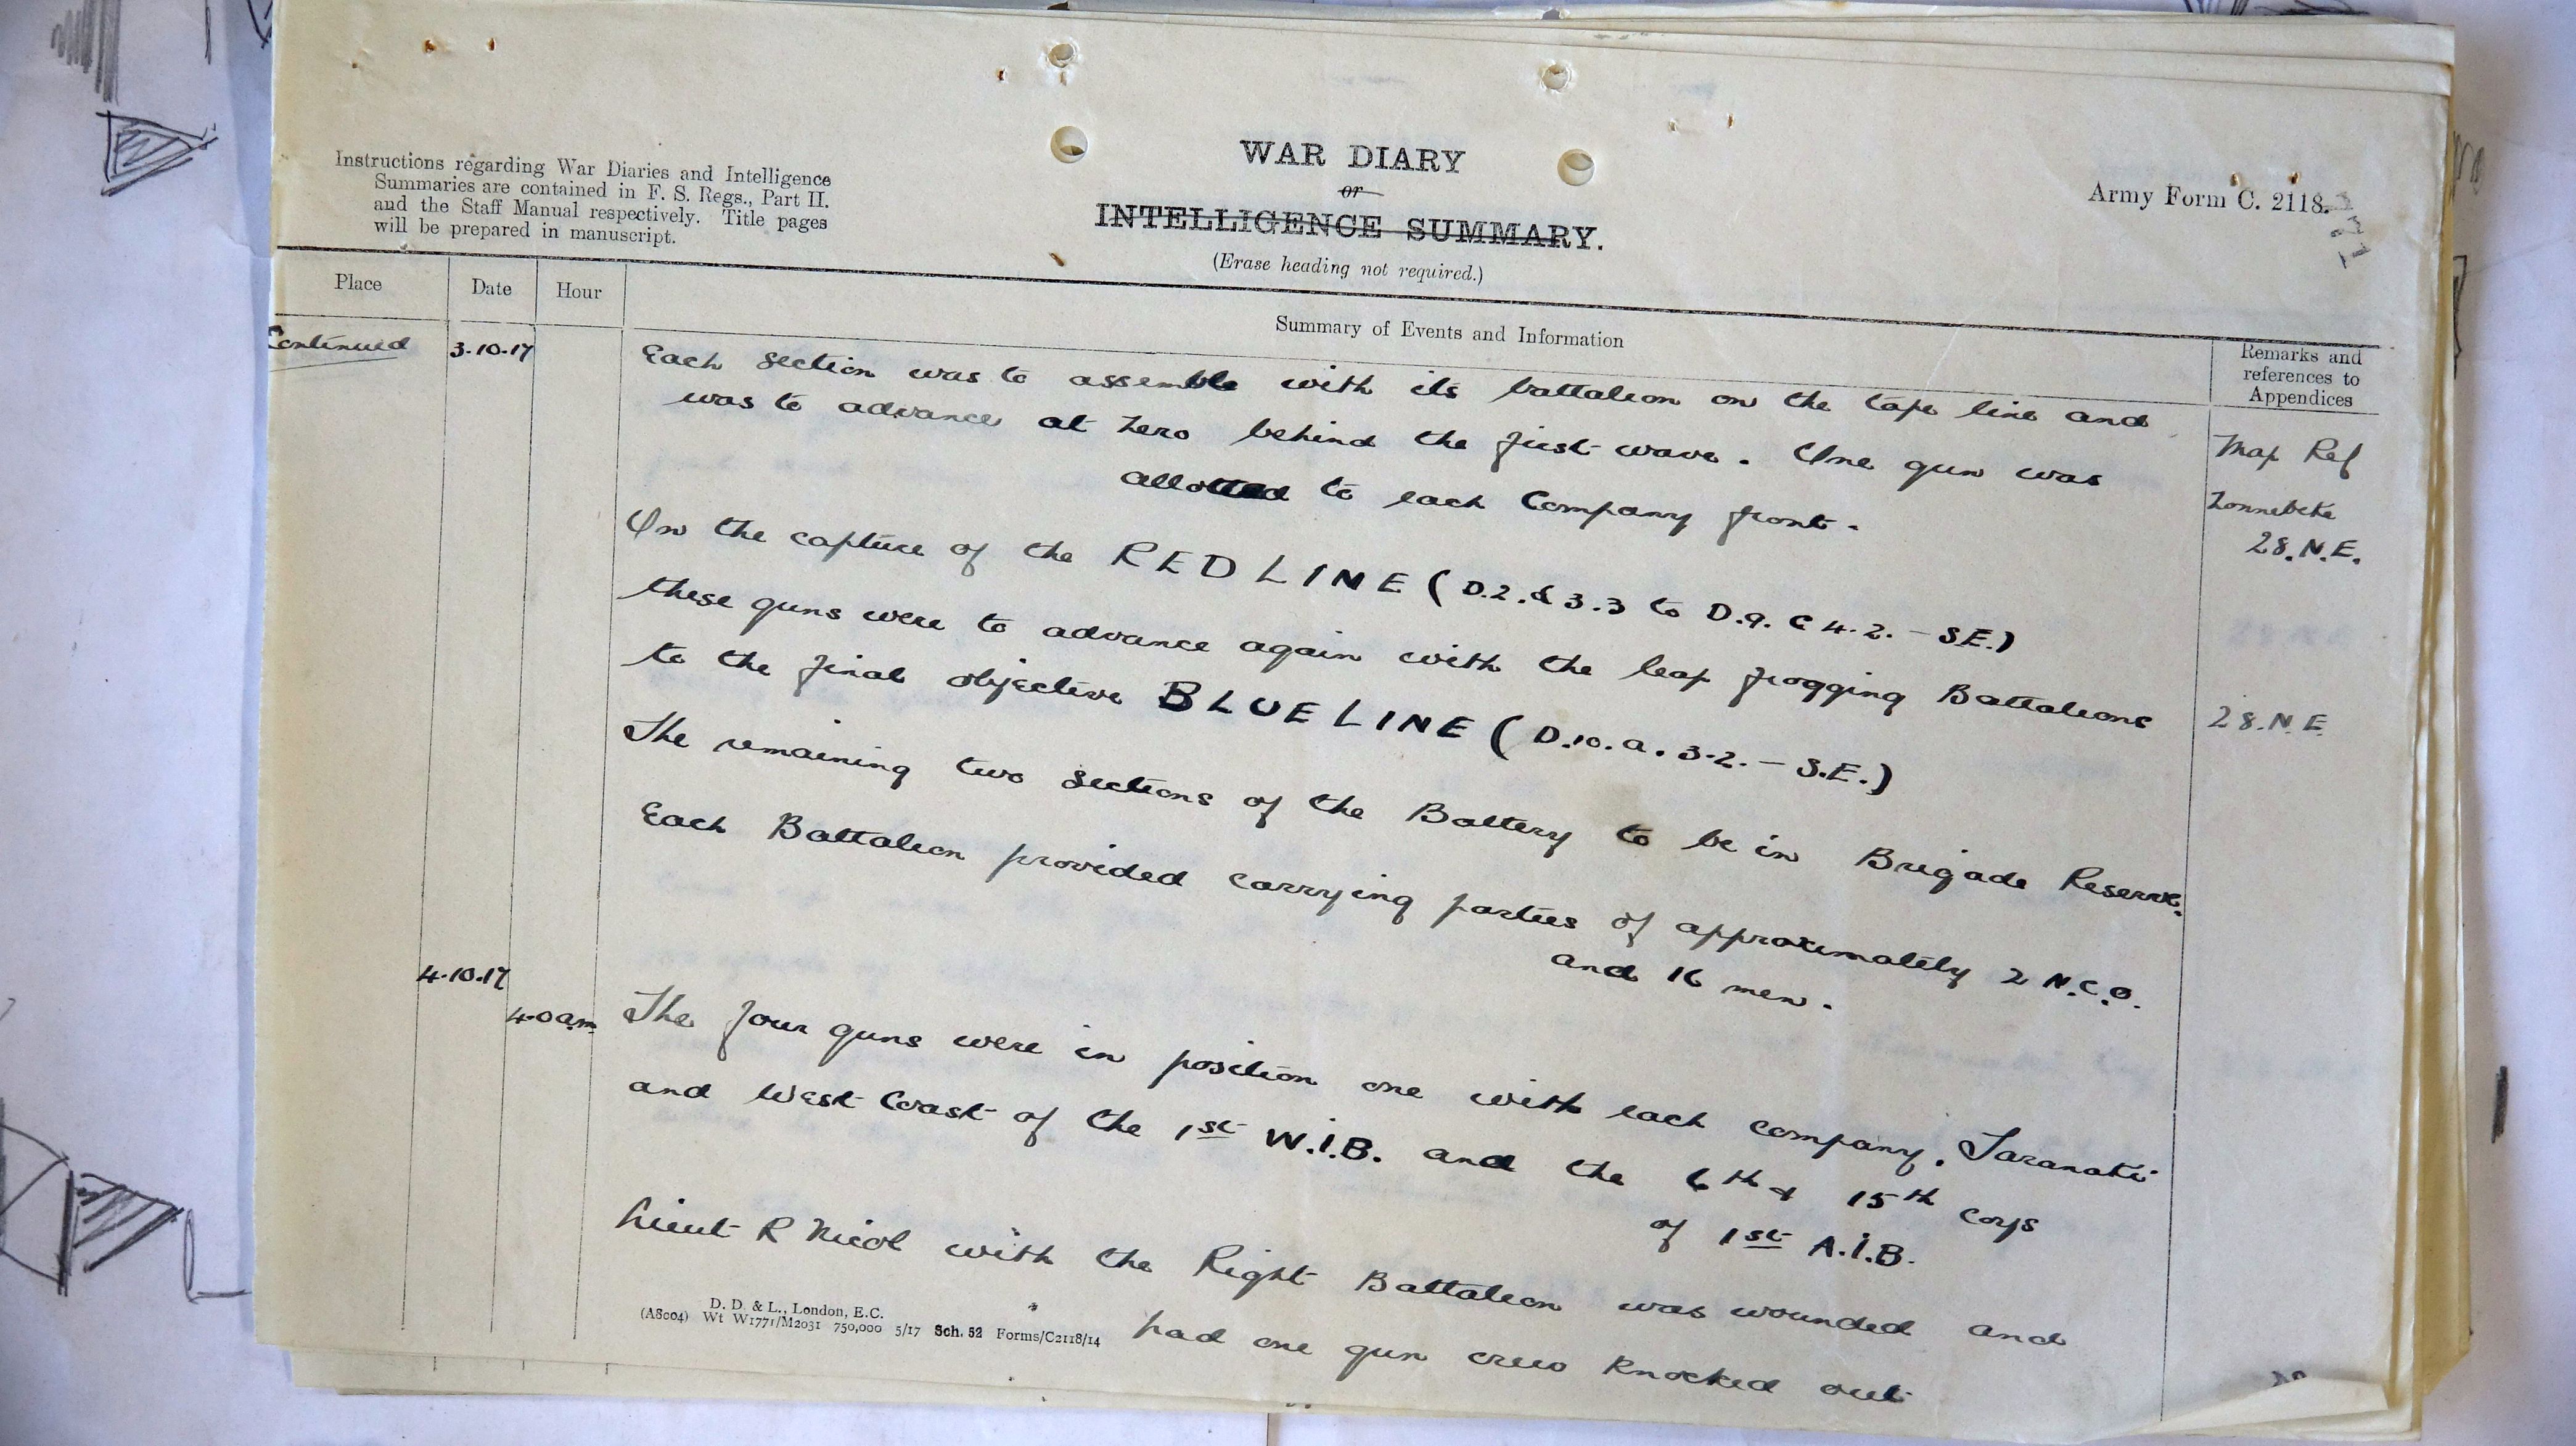 Instructions regarding War Diaries and Intelligence
Summaries are contained in F. S. Regs., Part II.
and the Staff Manual respectively. Title pages
will be prepared in manuscript.
WAR DIARY
or
INTELLIGENCE SUMMARY.
(Erase heading not required.)
Army Form C. 2118.
Place
Date
Hour
Summary of Events and Information
Remarks and
references to
Appendices
Continued
3.10.17
Each section was to assemble with its battalion on the tape line and
was to advance at Zero behind the first wave. One gun was
allotted to each Company front.
On the capture of the RED LINE (D.2.d 3.3 to D.9.c 4.2. – S.E.)
these guns were to advance again with the leap frogging Battalions
to the final objective BLUE LINE (D.10.a.3.2. – S.E.)
The remaining two sections of the Battery to be in Brigade Reserve.
Each Battalion provided carrying parties of approximately 2 N.C.O.
and 16 men.
Map Ref
Zonnebeke
28.N.E.
28.N.E
4.10.17
4.0am
The four guns were in position one with each company. Taranaki
and West Coast of the 1st W.I.B. and the 6th & 15th coys
of 1st A.I.B.
Lieut R Nicol with the Right Battalion was wounded and
had one gun crew knocked out
D. D. & L., London, E.C.
(A8004) Wt W1771/M2031 750,000 5/17 Sch. 52 Forms/C2118/14